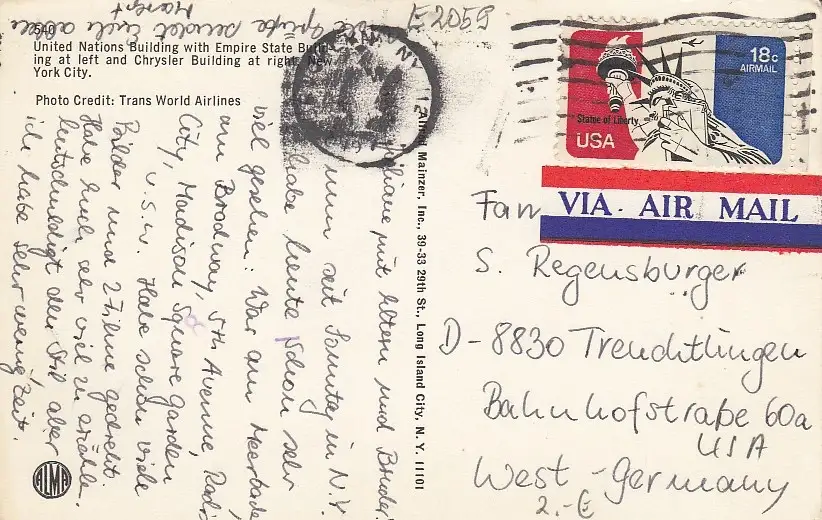 E 2059
540
United Nations Building with Empire State Building at left and Chrysler Building at right, New
York City.
Photo Credit: Trans World Airlines
mit Eltern und Bruder!
nun seit Sonntag in N.Y.
habe heute schon sehr
viel gesehen: War am Meer baden
am Brodway, 5th Avenue, Radio
City, Madison Square Garden
u.s.w. Habe schon viele
Bilder und 2 Filme gedreht.
Habe Euch sehr viel zu erzählen.
Entschuldigt den Stil aber
ich habe sehr wenig Zeit.
Grüße sendet Euch allen
Margit
ALMA
Alfred Mainzer, Inc., 39-33 29th St., Long Island City, N. Y. 11101
18c
AIRMAIL
Statue of Liberty
USA
VIA · AIR MAIL
Fam
S. Regensburger
D-8830 Treuchtlingen
Bahnhofstraße 60a
USA
West-Germany
2.-€